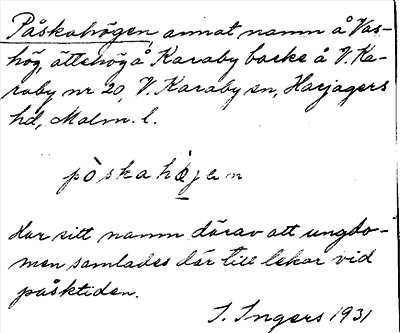 Påskahögen annat namn å Vas-
hög, ättehög å Karaby backe å V. Ka-
raby nr 20, V. Karaby sn, Harjagers
hd, Malm. l.
pòskahøjen
Har sitt namn därav att ungdo-
men samlades där till lekar vid
påsktiden.
I. Ingers 1931